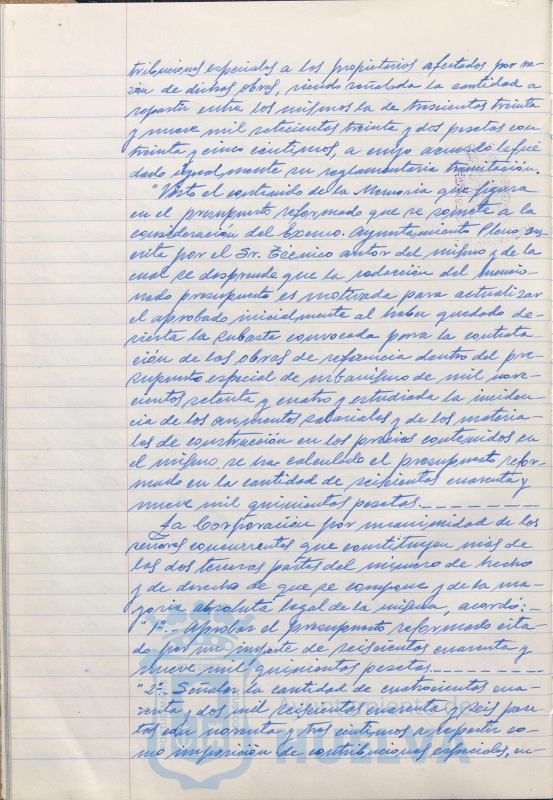 tribuciones especiales a los propietarios afectados por ra-
zón de dichas obras, siendo señalada la cantidad a
repartir entre los mismos la de trescientas treinta
y nueve mil setecientas treinta y dos pesetas con
treinta y cinco céntimos, a cuyo acuerdo le fué
dado igualmente su reglamentaria tramitación.
"Visto el contenido de la Memoria que figura
en el presupuesto reformado que se somete a la
consideración del Excmo. Ayuntamiento Pleno, sus-
crita por el Sr. Técnico autor del mismo y de la
cual se desprende que la redacción del mencio-
nado presupuesto es motivada para actualizar
el aprobado inicialmente al haber quedado de-
sierta la subasta convocada para la contrata-
ción de las obras de referencia dentro del pre-
supuesto especial de urbanismo de mil nove-
cientos setenta y cuatro y estudiada la inciden-
cia de los aumentos salariales y de los materia-
les de construcción en los precios contenidos en
el mismo se ha calculado el presupuesto refor-
mado en la cantidad de seiscientas cuarenta y
nueve mil quinientas pesetas.--------
La Corporación por unanimidad de los
señores concurrentes que constituyen más de
las dos terceras partes del número de hecho
y de derecho de que se compone y de la ma-
yoría absoluta legal de la misma, acordó:-
"1º.- Aprobar el presupuesto reformado cita-
do por un importe de seiscientas cuarenta y
nueve mil quinientas pesetas.--------
"2º.- Señalar la cantidad de cuatrocientas cua-
renta y dos mil seiscientas cuarenta y seis pese-
tas con noventa y tres céntimos a repartir co-
mo imposición de contribuciones especiales, en-
HUELVA